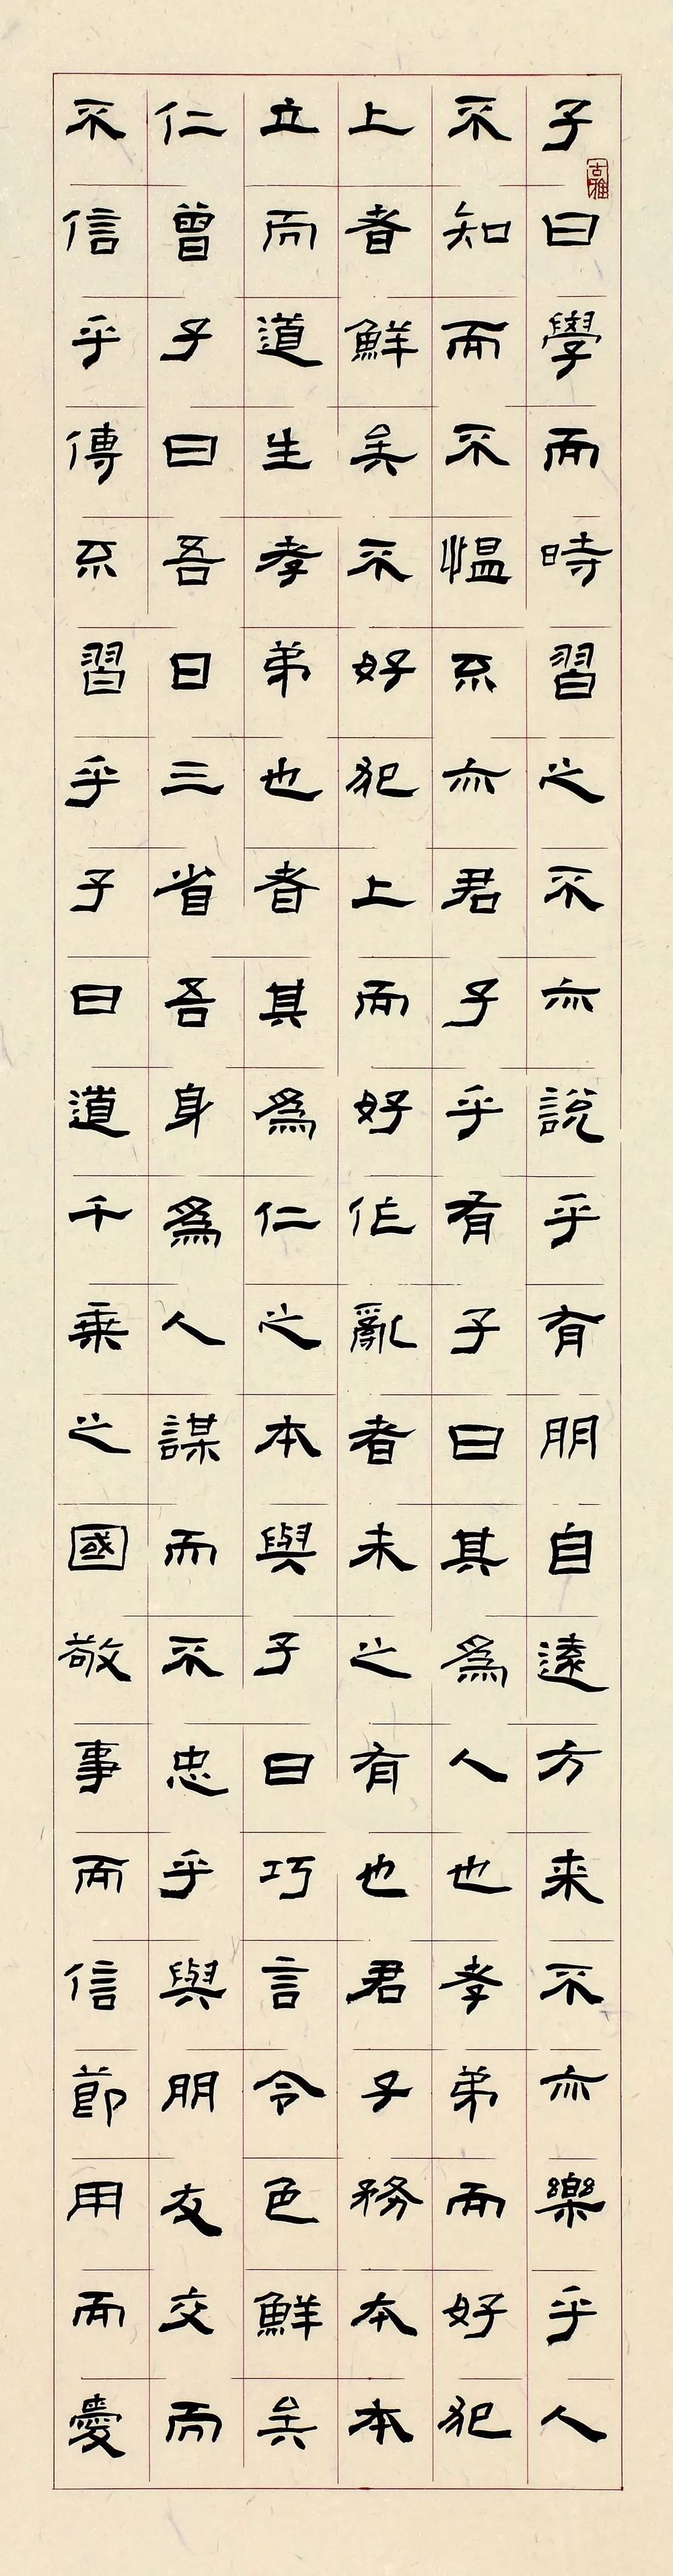 子曰學而時習之不亦說乎有朋自遠方来不亦樂乎人
不知而不愠不亦君子乎有子曰其爲人也孝弟而好犯
上者鮮矣不好犯上而好作亂者未之有也君子務本本
立而道生孝弟也者其爲仁之本與子曰巧言令色鮮矣
仁曾子曰吾日三省吾身爲人謀而不忠乎與朋友交而
不信乎傳不習乎子曰道千乘之國敬事而信節用而愛
古雅